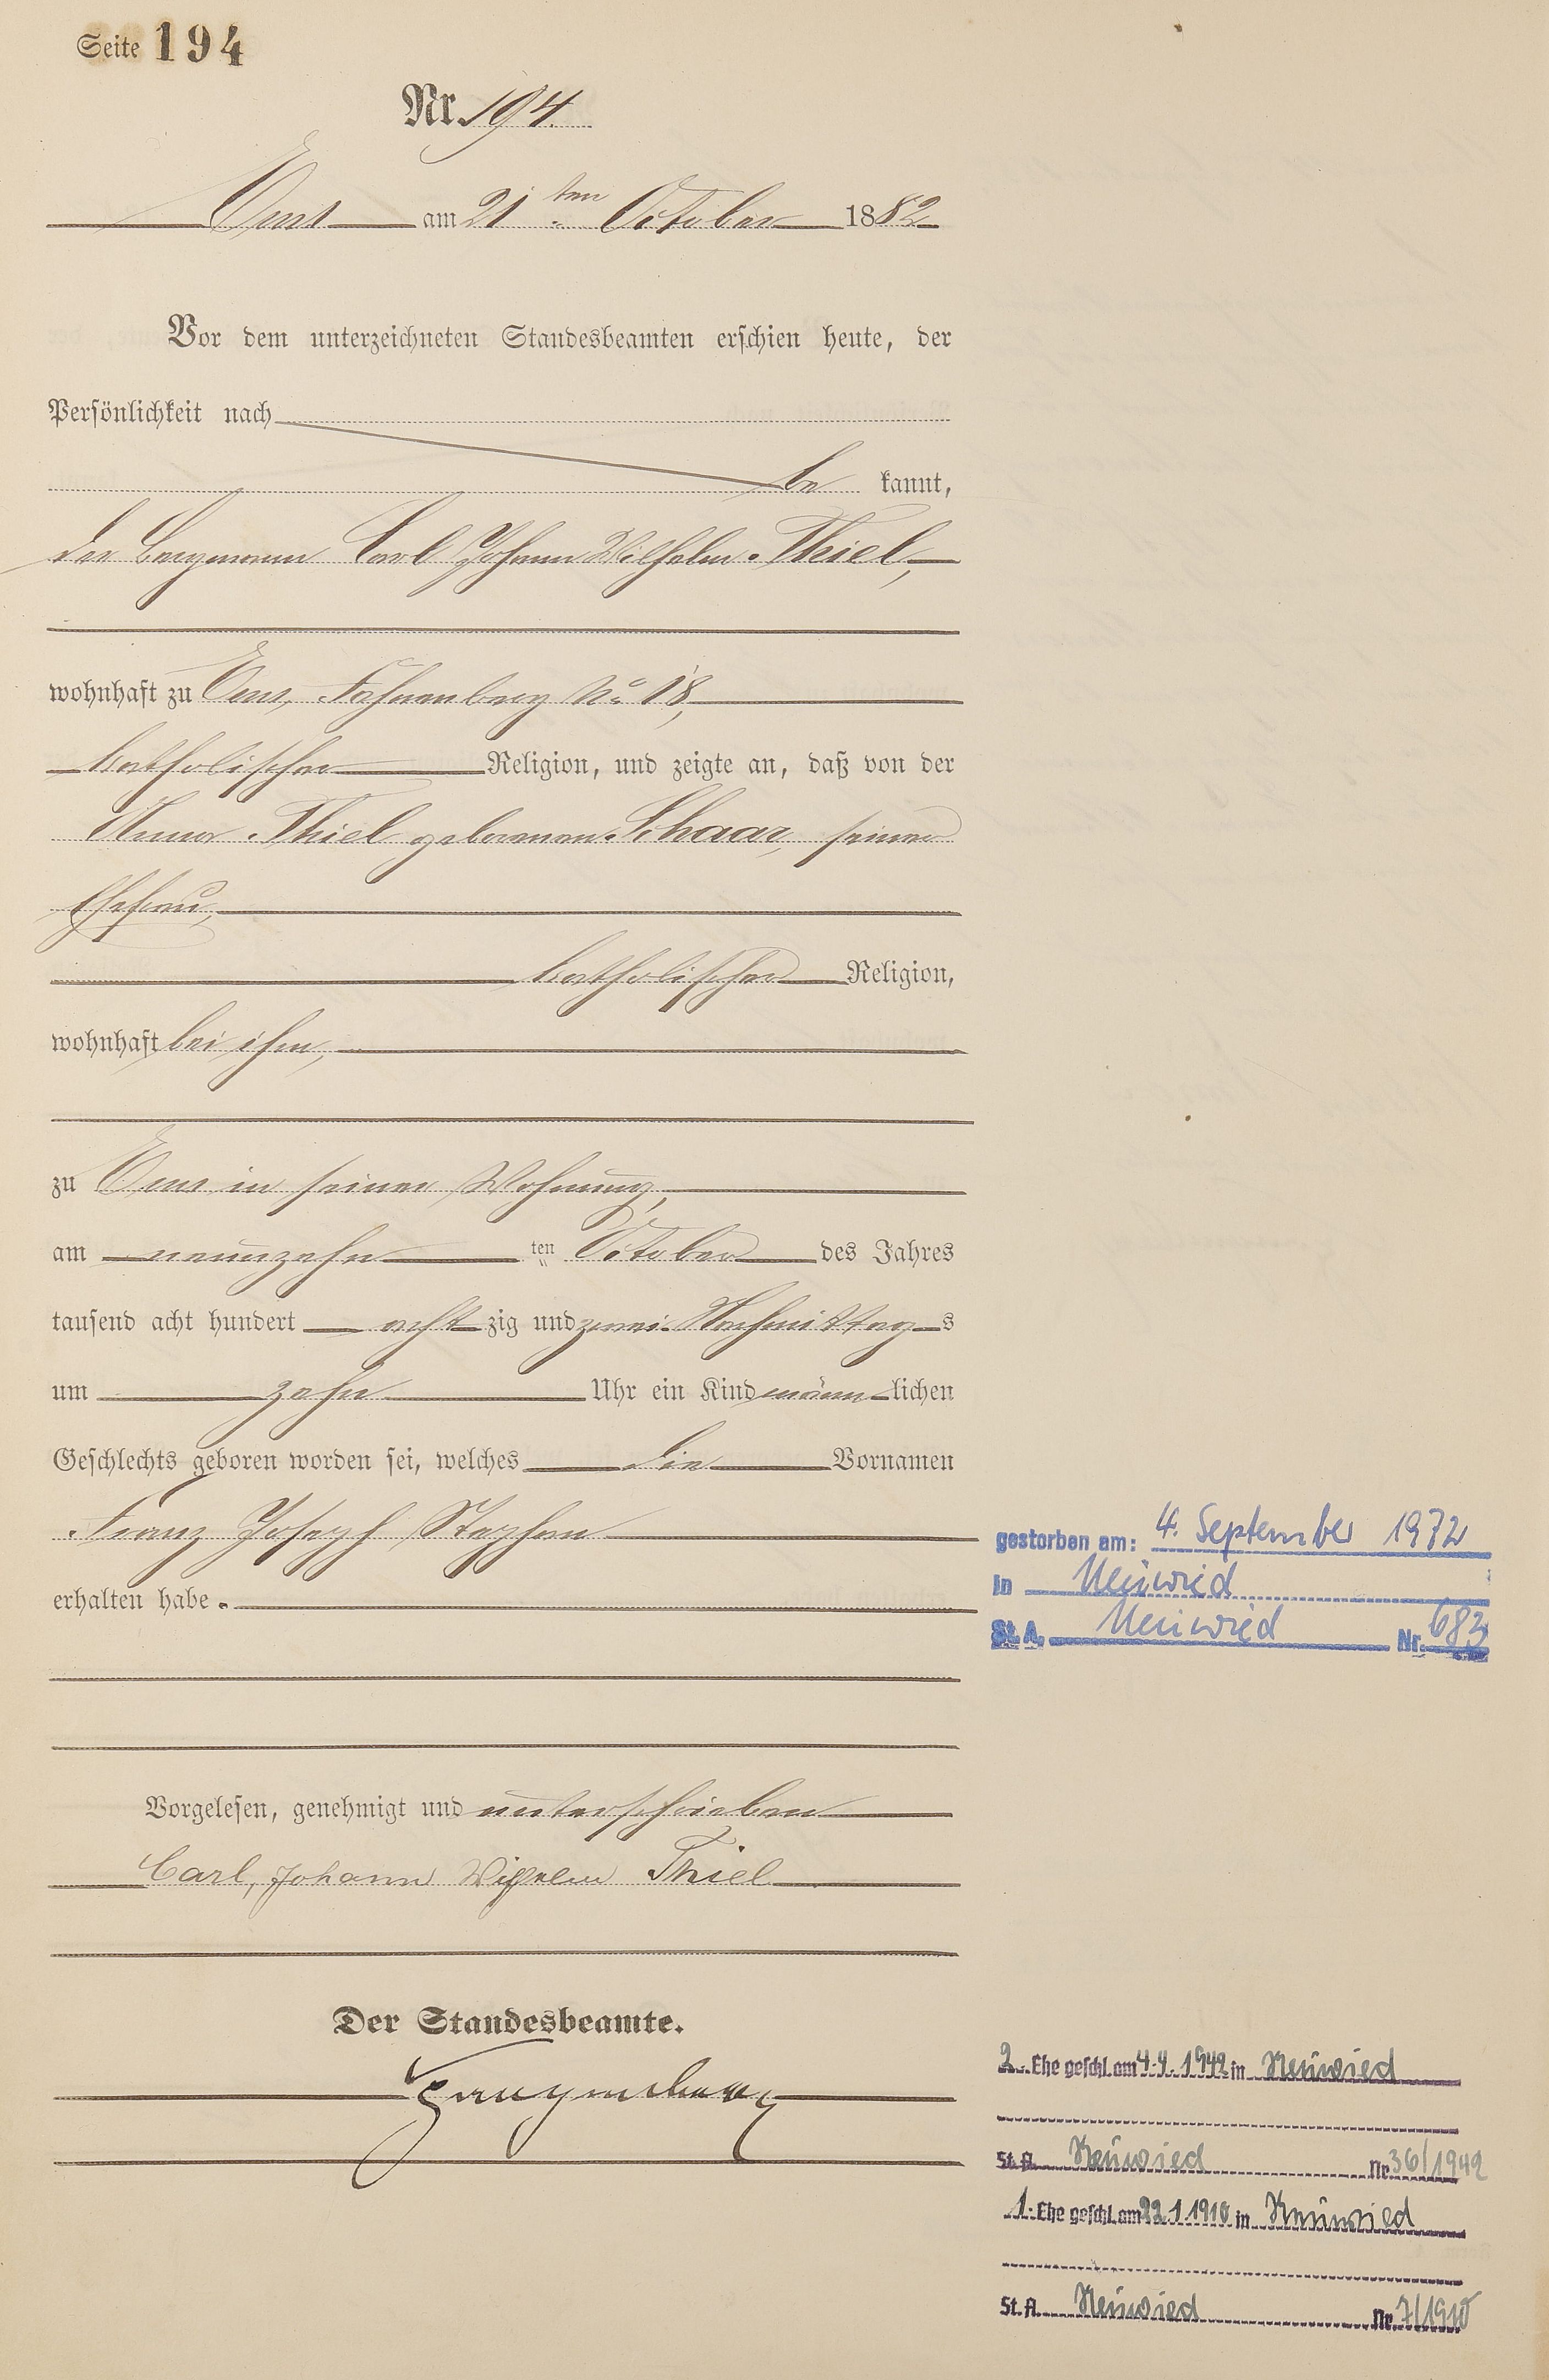 Seite 194
Nr. 194.
Ems am 21ten October 1882
Vor dem unterzeichneten Standesbeamten erschien heute, der
Persönlichkeit nach
be kannt,
der Bergmann Carl Johann Wilhelm Thiel,
wohnhaft zu Ems, Fahnenberg No 18,
katholischer Religion, und zeigte an, daß von der
Anna Thiel geborenen Schaar, seiner
Ehefrau,
katholischer Religion,
wohnhaft bei ihm,
zu Ems in seiner Wohnung,
am neunzehn ten October des Jahres
tausend acht hundert acht zig und zwei Nachmittag s
um zehn Uhr ein Kind männ lichen
Geschlechts geboren worden sei, welches die Vornamen
Franz Joseph Stephan
erhalten habe.
Vorgelesen, genehmigt und unterschrieben
Carl, Johann Wilhelm Thiel
Der Standesbeamte.
gestorben am: 4. September 1972
in Neuwied
St. A. Neuwied Nr. 683
2. Ehe geschl. am 4.4.1942 in Neuwied
St. A. Neuwied Nr. 36/1942
1. Ehe geschl. am 22.1.1910 in Neuwied
St. A. Neuwied Nr. 7/1910